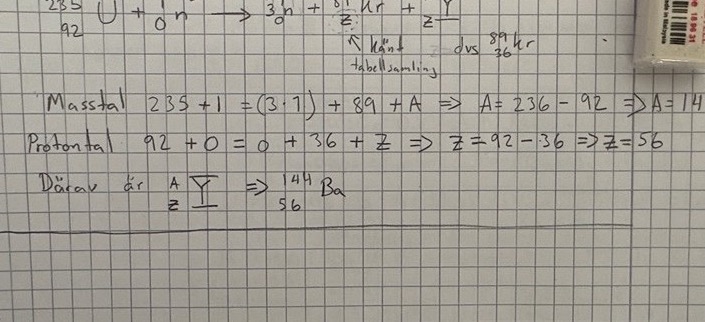 235 92 U + 1 0 n → 3 1 0 n + 89 Z Kr + A Z Y
↖ känt dvs 89 36 Kr
tabellsamling
Masstal 235 + 1 = (3·1) + 89 + A ⇒ A = 236 - 92 ⇒ A = 14
Protontal 92 + 0 = 0 + 36 + Z ⇒ Z = 92 - 36 ⇒ Z = 56
Därav är A Z Y ⇒ 144 56 Ba